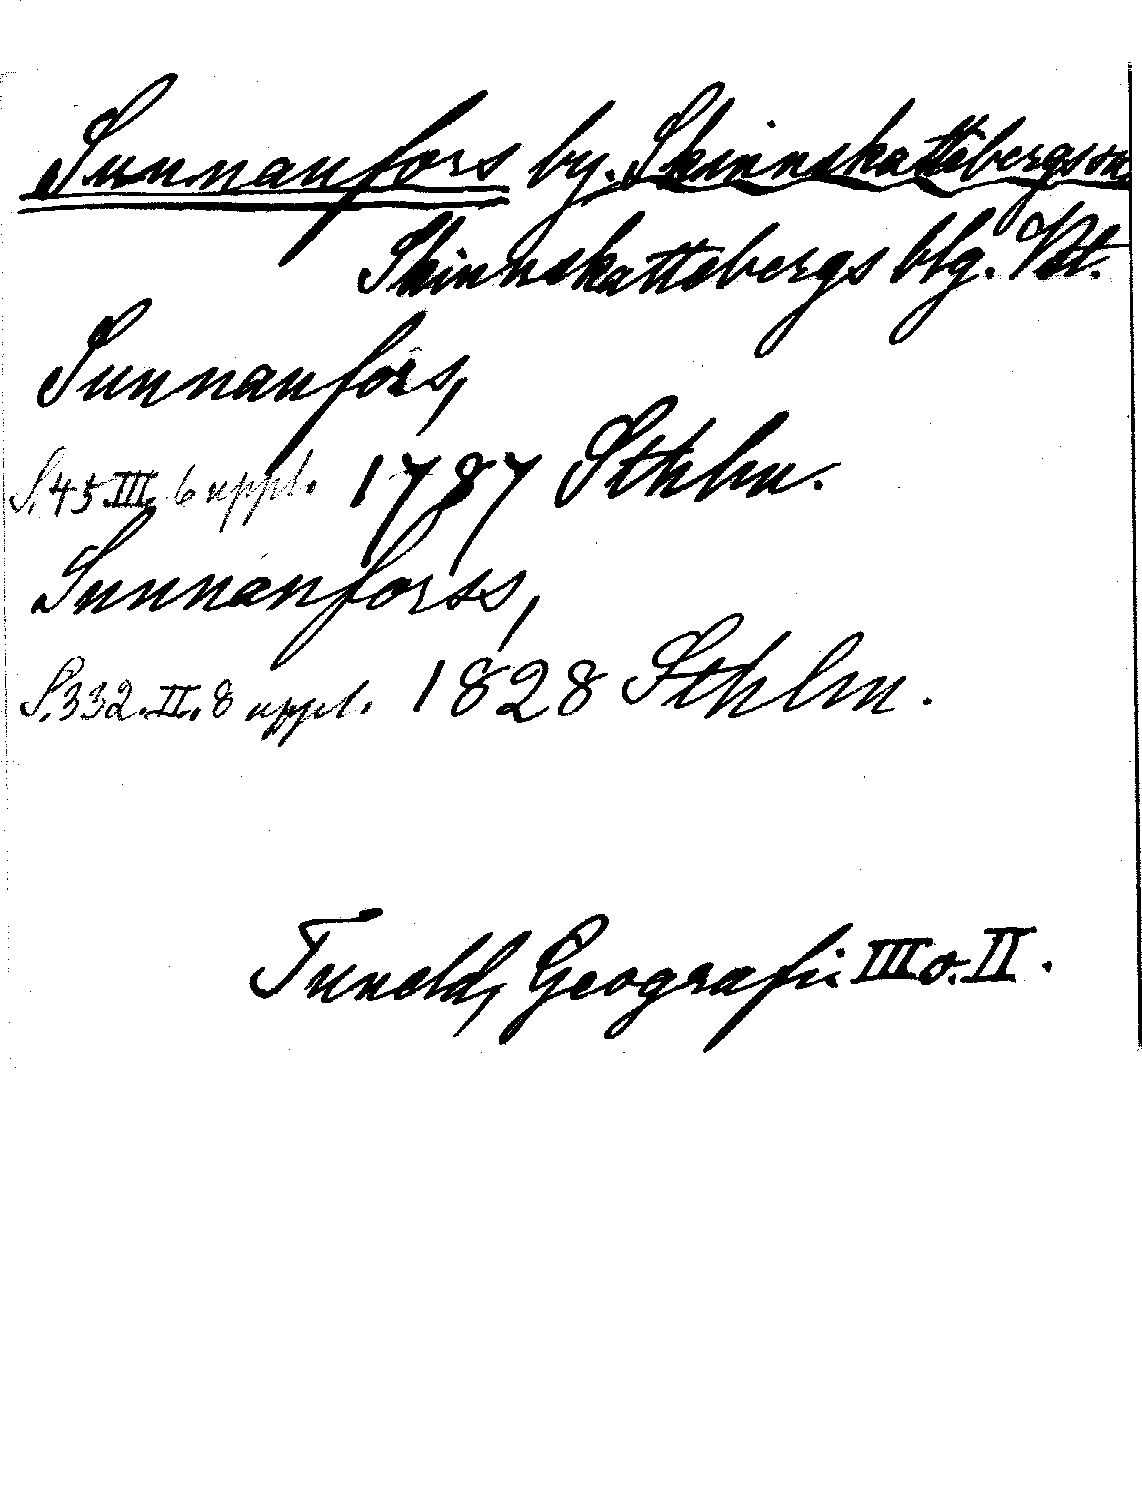 Sunnanfors by. Skinnskattebergs sn.
Skinnskattebergs blg. Vstm.
Sunnanfors,
S.45 III. 6 uppl. 1787 Sthlm.
Sunnanforss,
S.332. II. 8 uppl. 1828 Sthlm.
Tuneld, Geografi III o. II.